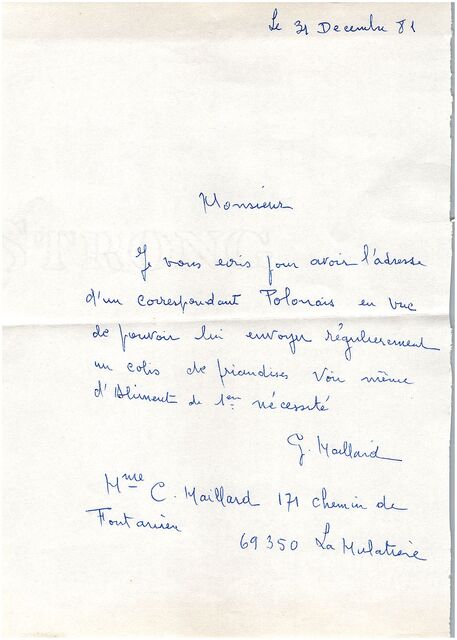 Le 31 Decembre 81
Monsieur
Je vous ecris pour avoir l'adresse
d'un correspondant Polonais en vue
de pouvoir lui envoyer régulierement
un colis de friandises Voir même
d'Aliment de 1er nécessité
G. Maillard
Mme C. Maillard 171 chemin de
Fontanieu
69350 La Mulatiere